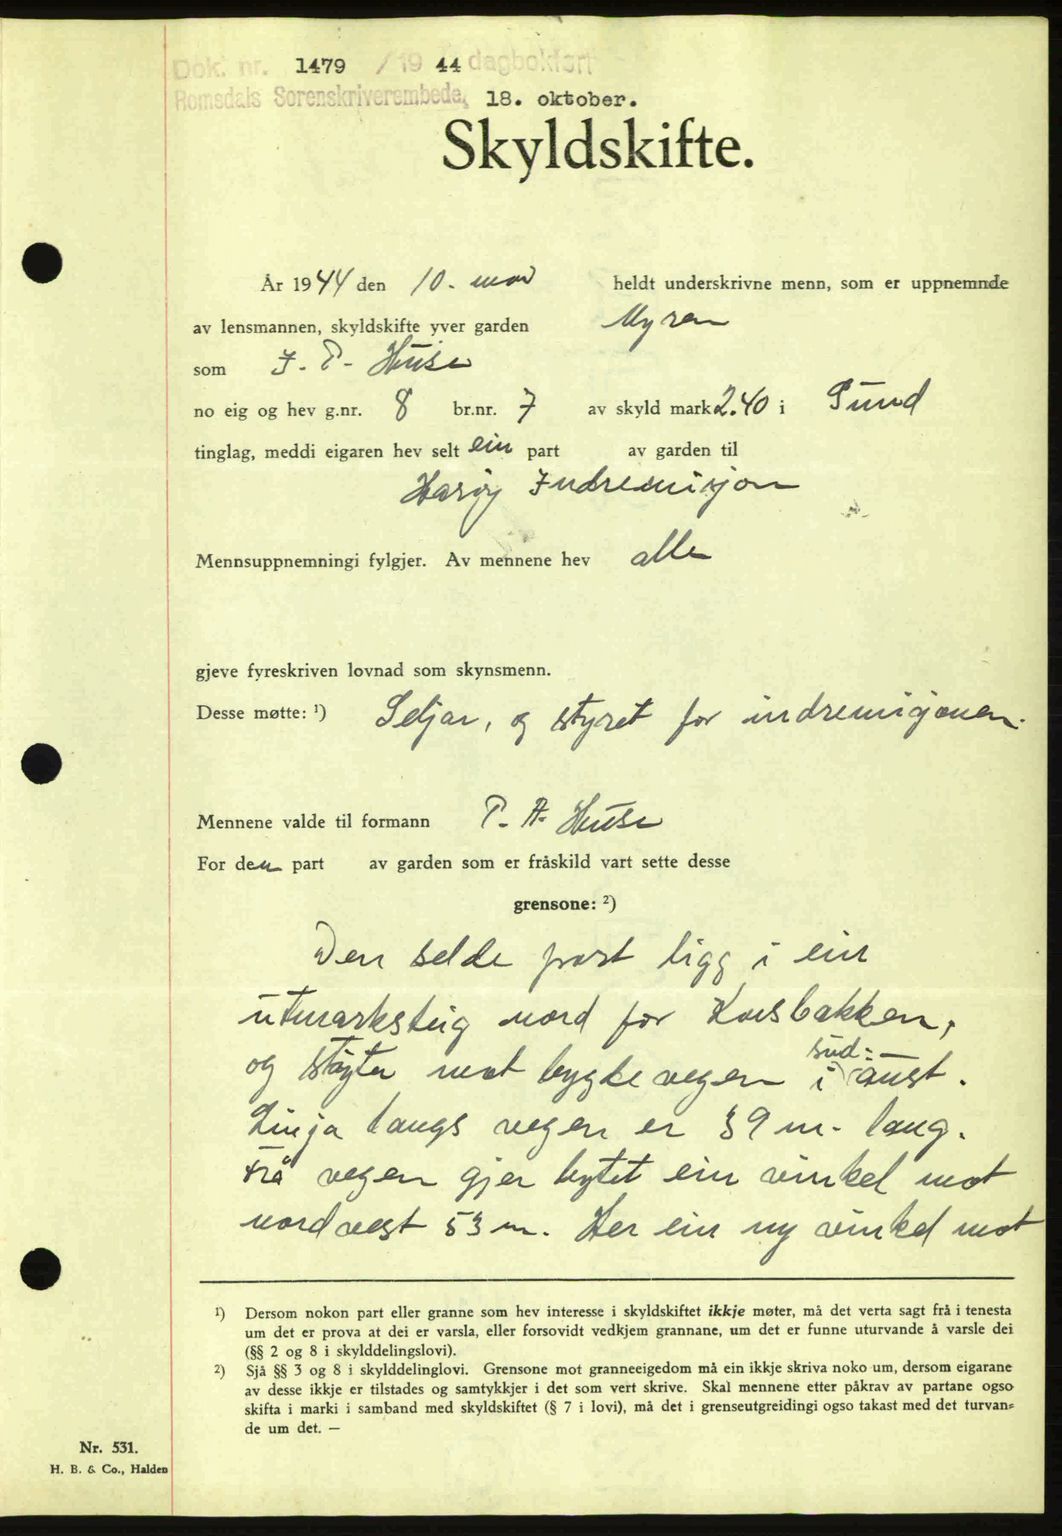 Dok. nr. 1479 / 19 44 dagbokført
Romsdals Sorenskriverembede, 18. oktober.
Skyldskifte.
År 1944 den 10. mai heldt underskrivne menn, som er uppnemnde
av lensmannen, skyldskifte yver garden Myren
som J. P. Huse
no eig og hev g.nr. 8 br.nr. 7 av skyld mark 2.40 i Sund
tinglag, meddi eigaren hev selt ein part av garden til
Harøy Indremisjon
Mennsuppnemningi fylgjer. Av mennene hev alle
gjeve fyreskriven lovnad som skynsmenn.
Desse møtte: ¹) Seljar, og styret for indremisjonen.
Mennene valde til formann P. A. Huse
For den part av garden som er fråskild vart sette desse
grensone: ²)
Den selde part ligg i ein
utmarksteig nord for Korsbakken,
og støyter mot bygdevegen i sud:-aust.
Linja langs vegen er 39 m. lang.
Frå vegen gjer bytet ein vinkel mot
nordvest 53 m. Her ein ny vinkel mot
¹) Dersom nokon part eller granne som hev interesse i skyldskiftet ikkje møter, må det verta sagt frå i tenesta
um det er prova at dei er varsla, eller forsovidt vedkjem grannane, um det er funne uturvande å varsle dei
(§§ 2 og 8 i skylddelingslovi).
²) Sjå §§ 3 og 8 i skylddelinglovi. Grensone mot granneeigedom må ein ikkje skriva noko um, dersom eigarane
av desse ikkje er tilstades og samtykkjer i det som vert skrive. Skal mennene etter påkrav av partane ogso
skifta i marki i samband med skyldskiftet (§ 7 i lovi), må det i grenseutgreidingi ogso takast med det turvan-
de um det. —
Nr. 531.
H. B. & Co., Halden